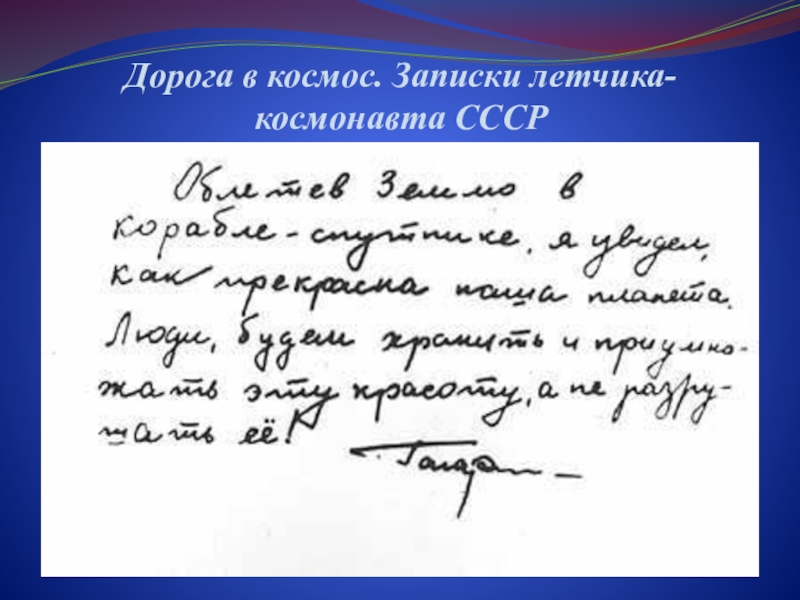 Дорога в космос. Записки летчика-
космонавта СССР
Облетев Землю в
корабле-спутнике, я увидел,
как прекрасна наша планета.
Люди, будем хранить и приумно-
жать эту красоту, а не разру-
шать её!
Гагарин